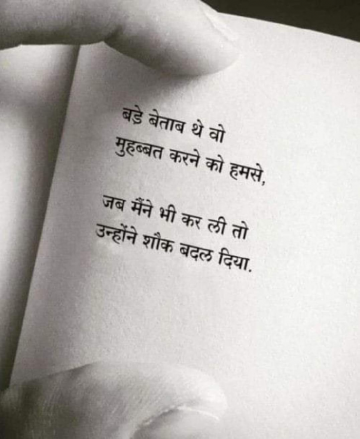 बड़े बेताब थे वो
मुहब्बत करने को हमसे,
जब मैंने भी कर ली तो
उन्होंने शौक बदल दिया.